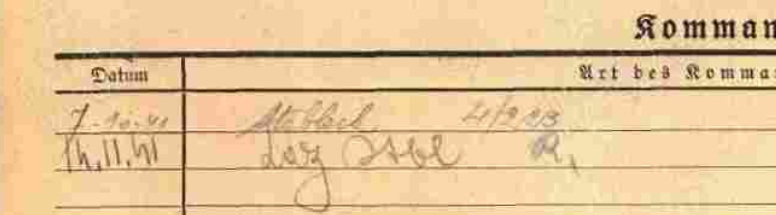 Komman
Datum
Art des Komma
7-10-41 Stablack
14.11.41 Laz Stbl R.